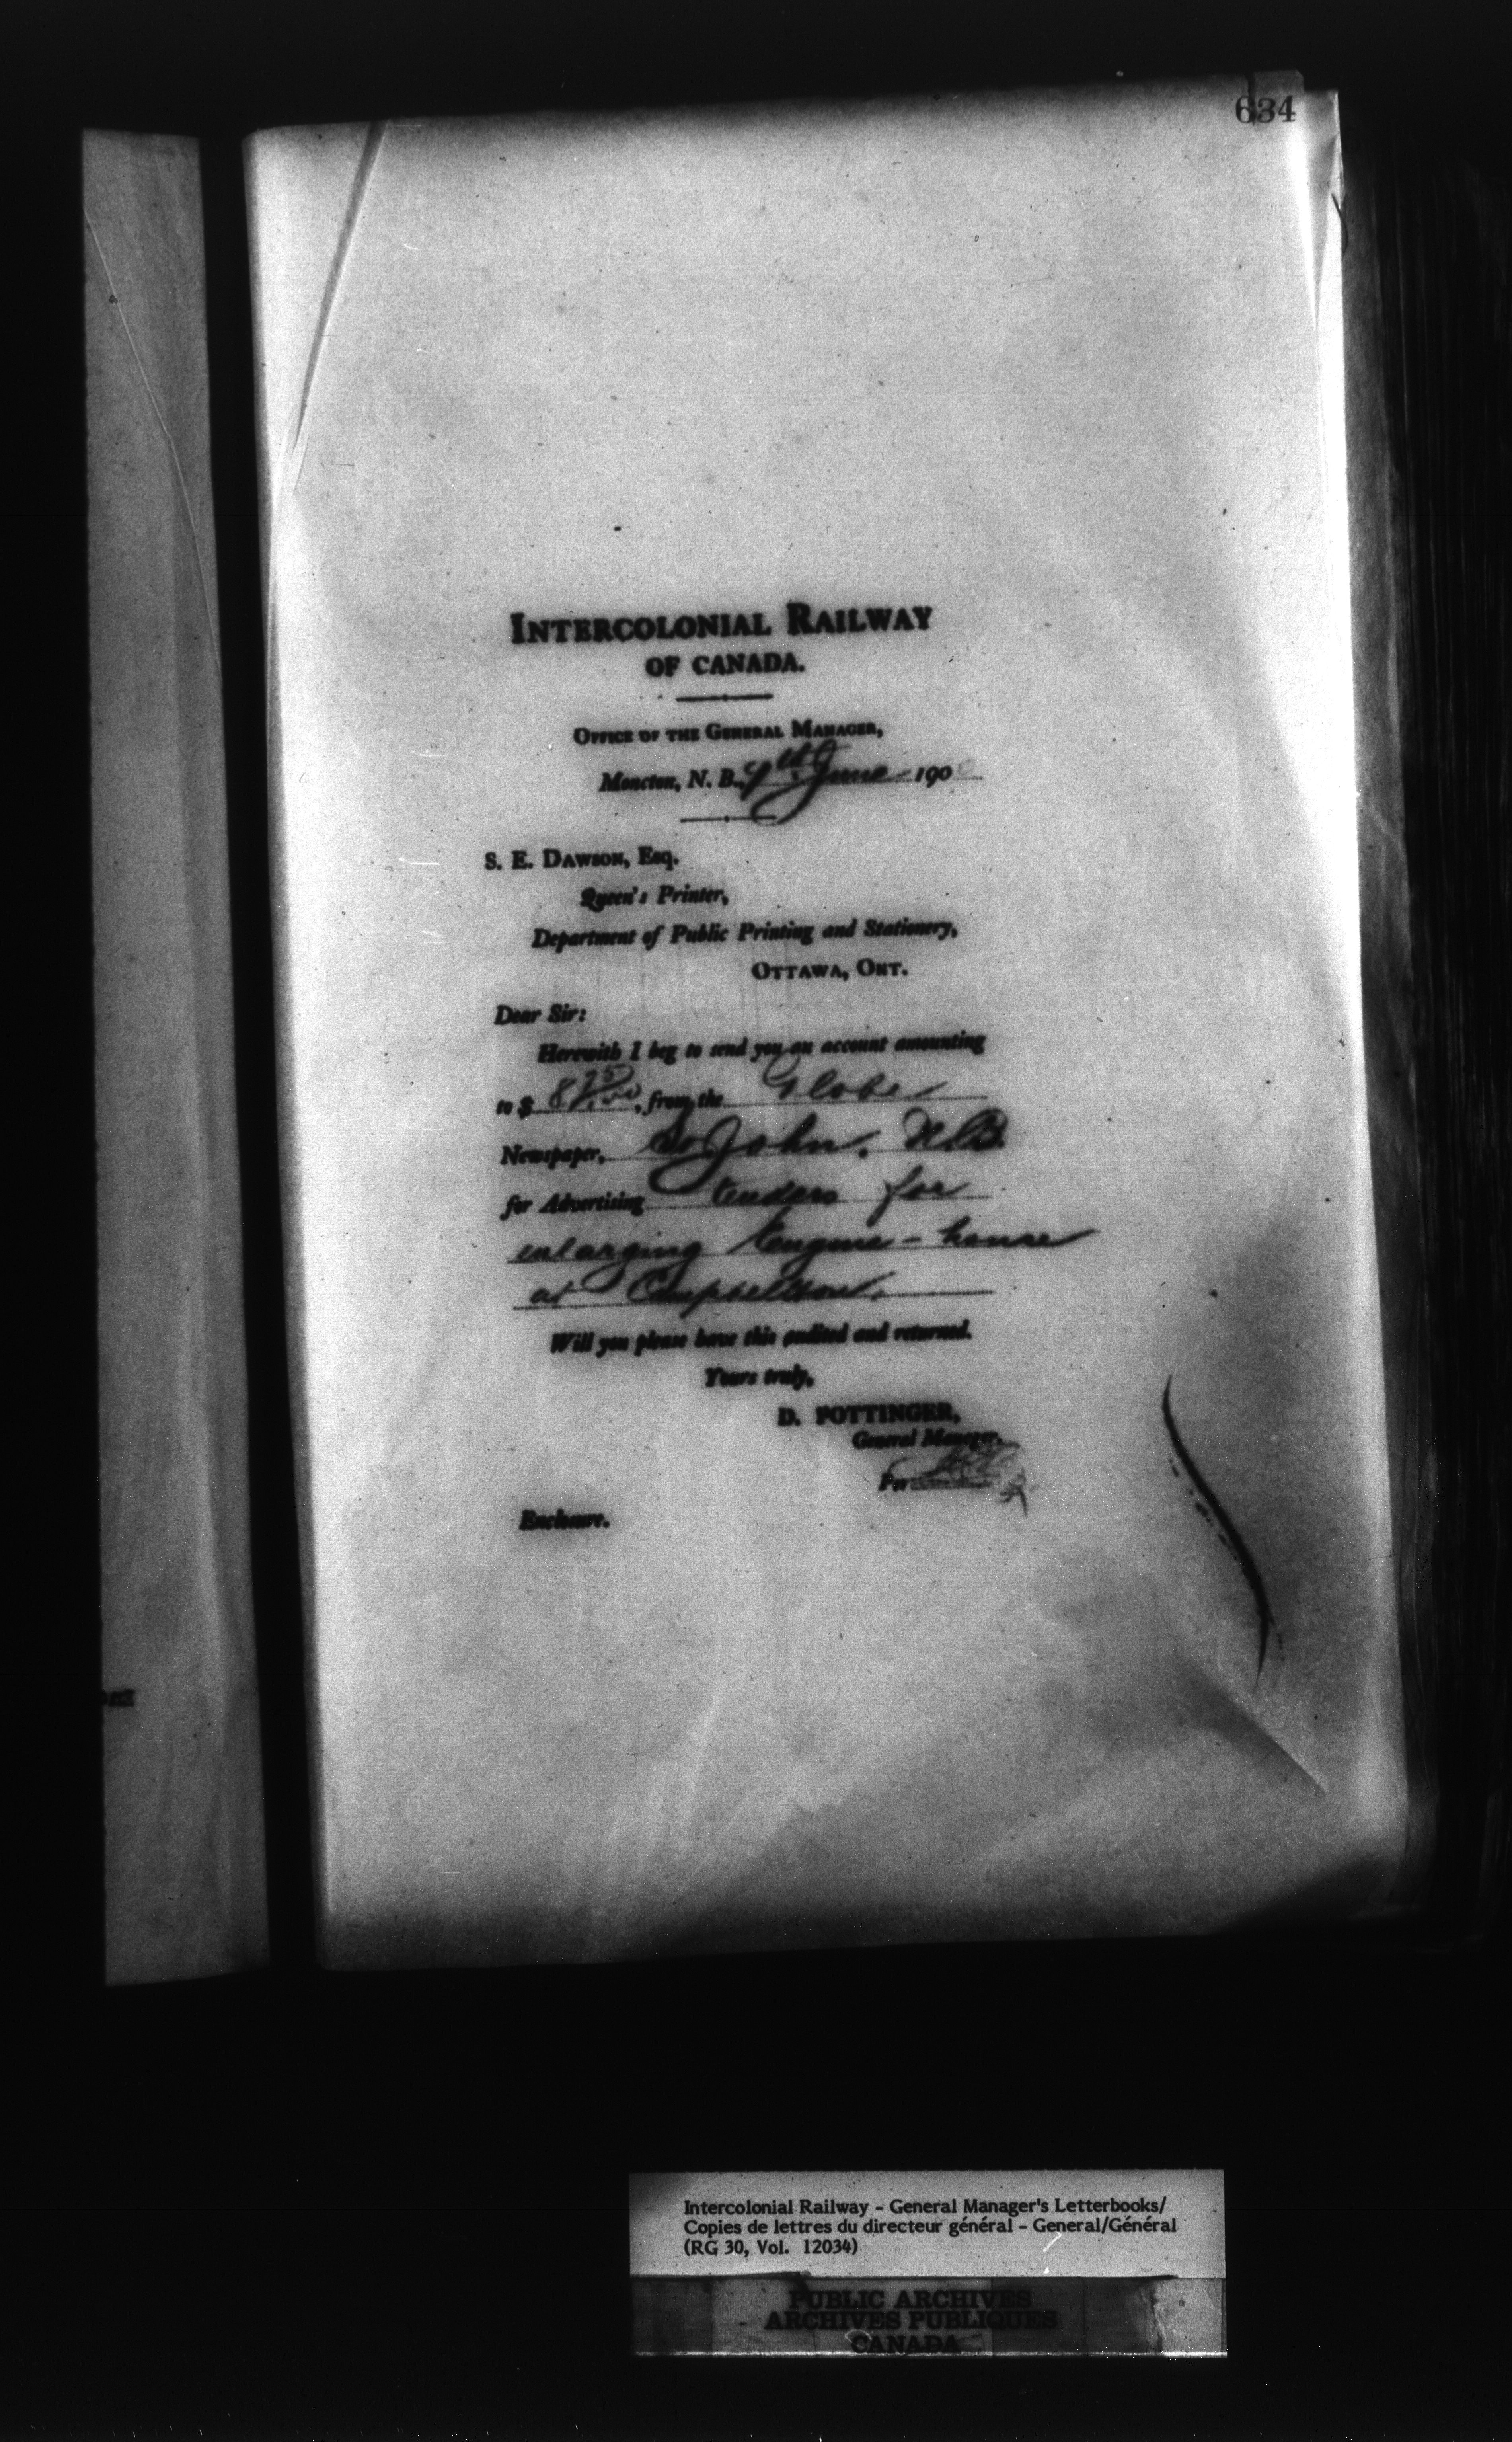 634
INTERCOLONIAL RAILWAY
OF CANADA.
OFFICE OF THE GENERAL MANAGER,
Moncton, N. B., June 190
S. E. DAWSON, Esq.
Queen's Printer,
Department of Public Printing and Stationery,
OTTAWA, ONT.
Dear Sir:
Herewith I beg to send you an account amounting
to $ , from the Globe
Newspaper, St John, N.B.
for Advertising tenders for
enlarging Engine-house
at Campbellton.
Will you please have this audited and returned.
Yours truly,
D. POTTINGER,
General Manager.
Per
Enclosure.
Intercolonial Railway - General Manager's Letterbooks/
Copies de lettres du directeur général - General/Général
(RG 30, Vol. 12034)
PUBLIC ARCHIVES
ARCHIVES PUBLIQUES
CANADA